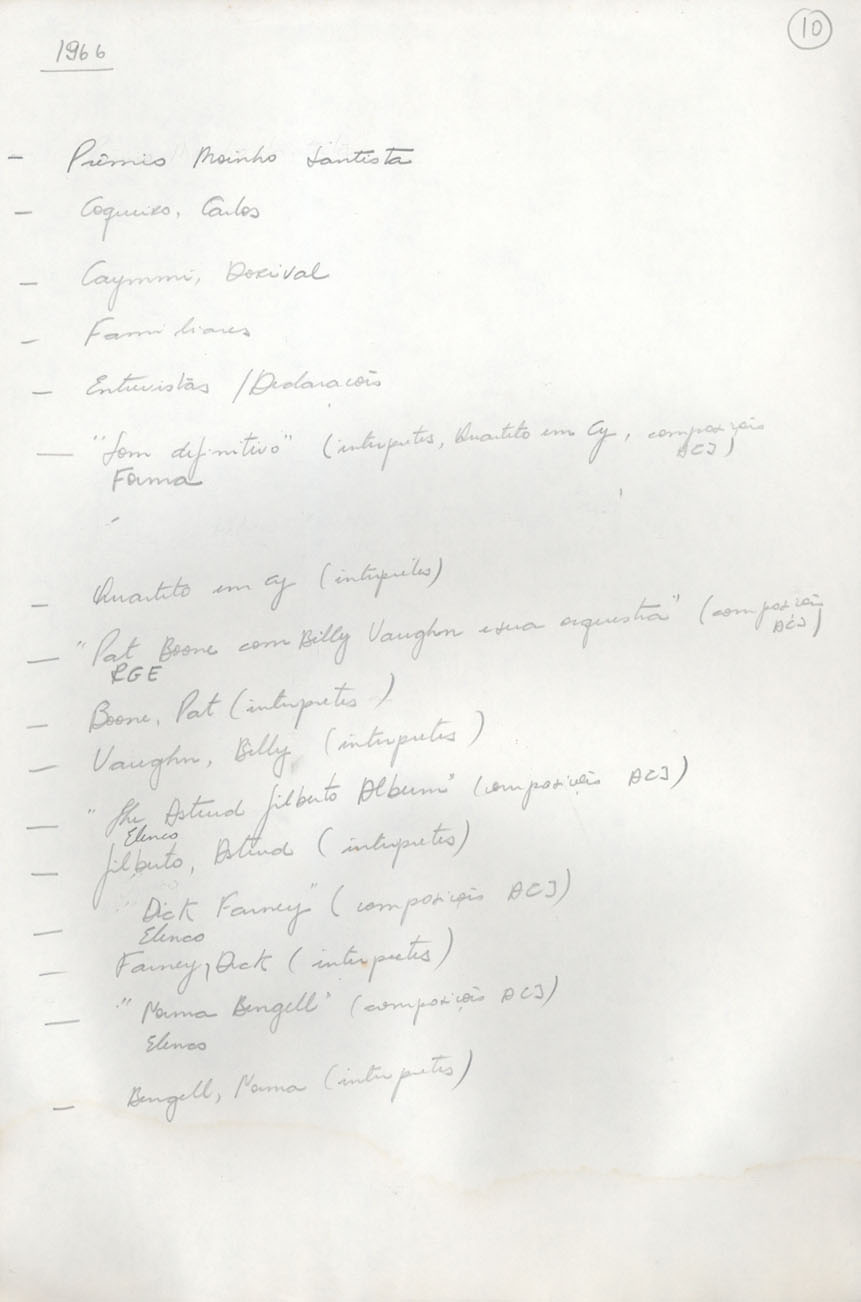 10
1966
- Prêmio Moinho Santista
- Coqueiro, Carlos
- Caymmi, Dorival
- Familiares
- Entrevistas / Declarações
- "Som definitivo" (intérpretes, Quarteto em Cy, composições
ACJ)
Forma
- Quarteto em Cy (intérpretes)
- "Pat Boone com Billy Vaughn e sua orquestra" (composições
ACJ)
RGE
- Boone, Pat (intérpretes)
- Vaughn, Billy (intérpretes)
- "The Astrud Gilberto Album" (composições ACJ)
Elenco
- Gilberto, Astrud (intérpretes)
- "Dick Farney" (composições ACJ)
Elenco
- Farney, Dick (intérpretes)
- "Norma Bengell" (composições ACJ)
Elenco
- Bengell, Norma (intérpretes)